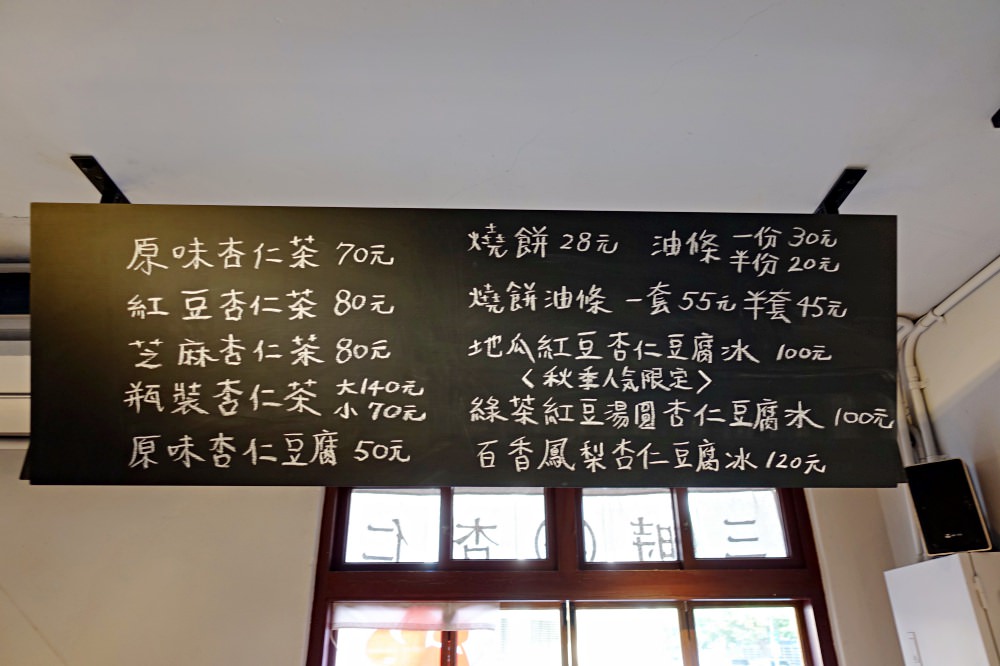 原味杏仁茶 70元
紅豆杏仁茶 80元
芝麻杏仁茶 80元
瓶裝杏仁茶 大140元
小 70元
原味杏仁豆腐 50元
燒餅 28元 油條 一份 30元
半份 20元
燒餅油條 一套 55元 半套 45元
地瓜紅豆杏仁豆腐冰 100元
〈秋季人氣限定〉
綠茶紅豆湯圓杏仁豆腐冰 100元
百香鳳梨杏仁豆腐冰 120元
三時杏仁